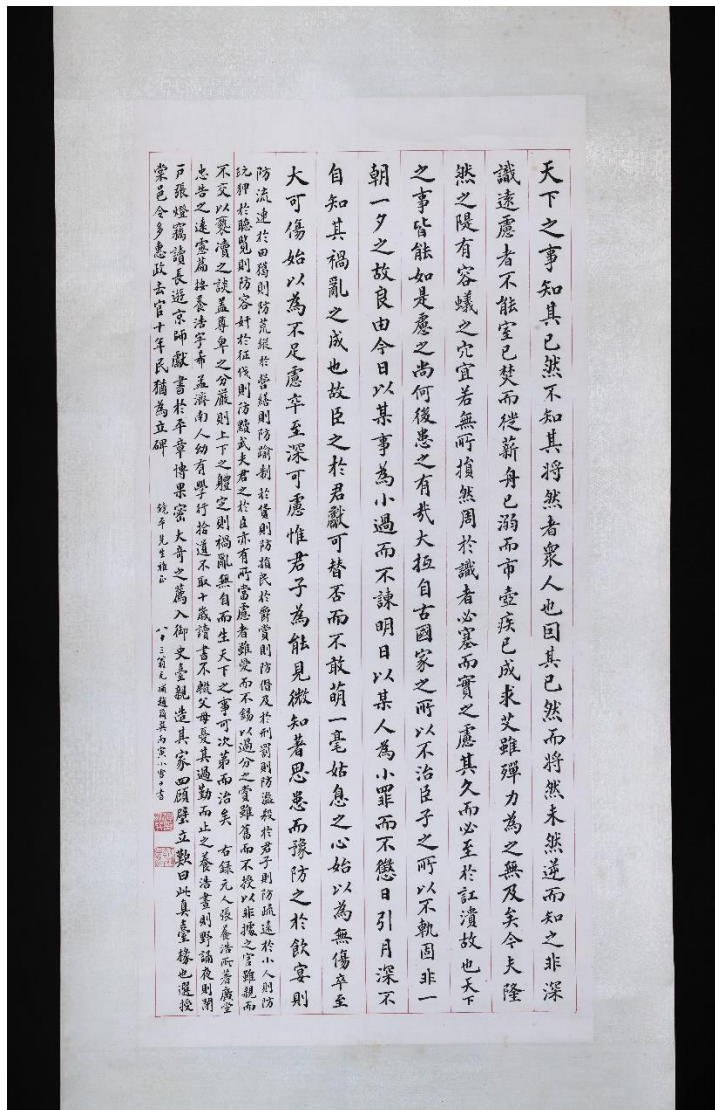 天下之事知其已然不知其将然者衆人也因其已然而将然未然逆而知之非深
識遠慮者不能室已焚而徙薪舟已溺而市壺疾已成求艾雖殫力為之無及矣今夫隆
然之隄有容蟻之穴宜若無所損然周於識者必塞而實之慮其久而必至於訌潰故也天下
之事皆能如是慮之尚何後患之有哉大抵自古國家之所以不治臣子之所以不軌固非一
朝一夕之故良由今日以某事為小過而不諫明日以某人為小罪而不懲日引月深不
自知其禍亂之成也故臣之於君獻可替否而不敢萌一毫姑息之心始以為無傷卒至
大可傷始以為不足慮卒至深可慮惟君子為能見微知著思患而豫防之於飲宴則
防流連於田獵則防荒縱於營繕則防踰制於貨則防損民於爵賞則防僭及於刑罰則防濫殺於君子則防疏遠於小人則防
玩狎於聽覽則防容奸於征伐則防黷武夫君之於臣亦有所當慮者雖愛而不錫以過分之賞雖舊而不授以非據之官雖親而
不交以褻瀆之談蓋尊卑之分嚴則上下之體定則禍亂無自而生天下之事可次第而治矣 右録元人張養浩所著廟堂
忠告之遠慮篇按養浩字希孟濟南人幼有學行拾遺不取十歲讀書不輟父母憂其過勤而止之養浩晝則野誦夜則閉
戸張燈竊讀長遊京師獻書於平章博果密大奇之薦入御史臺親造其家四顧壁立歎曰此真臺掾也選授
棠邑令多惠政去官十年民猶為立碑
鏡平先生雅正
八十三翁元補趙爾巽丙寅小雪日書